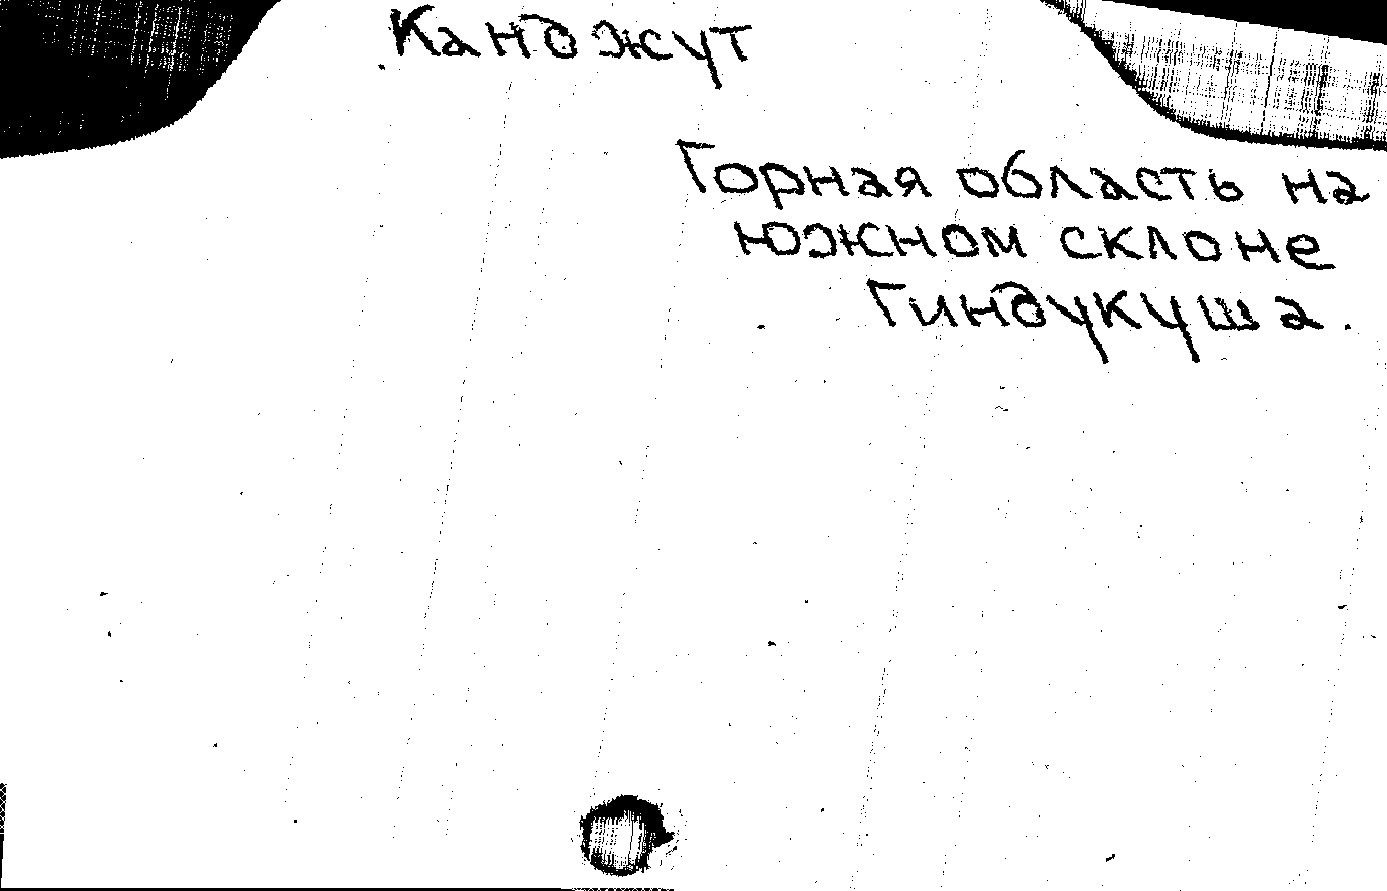 Канджут
Горная область на
южном склоне
Гиндукуша.